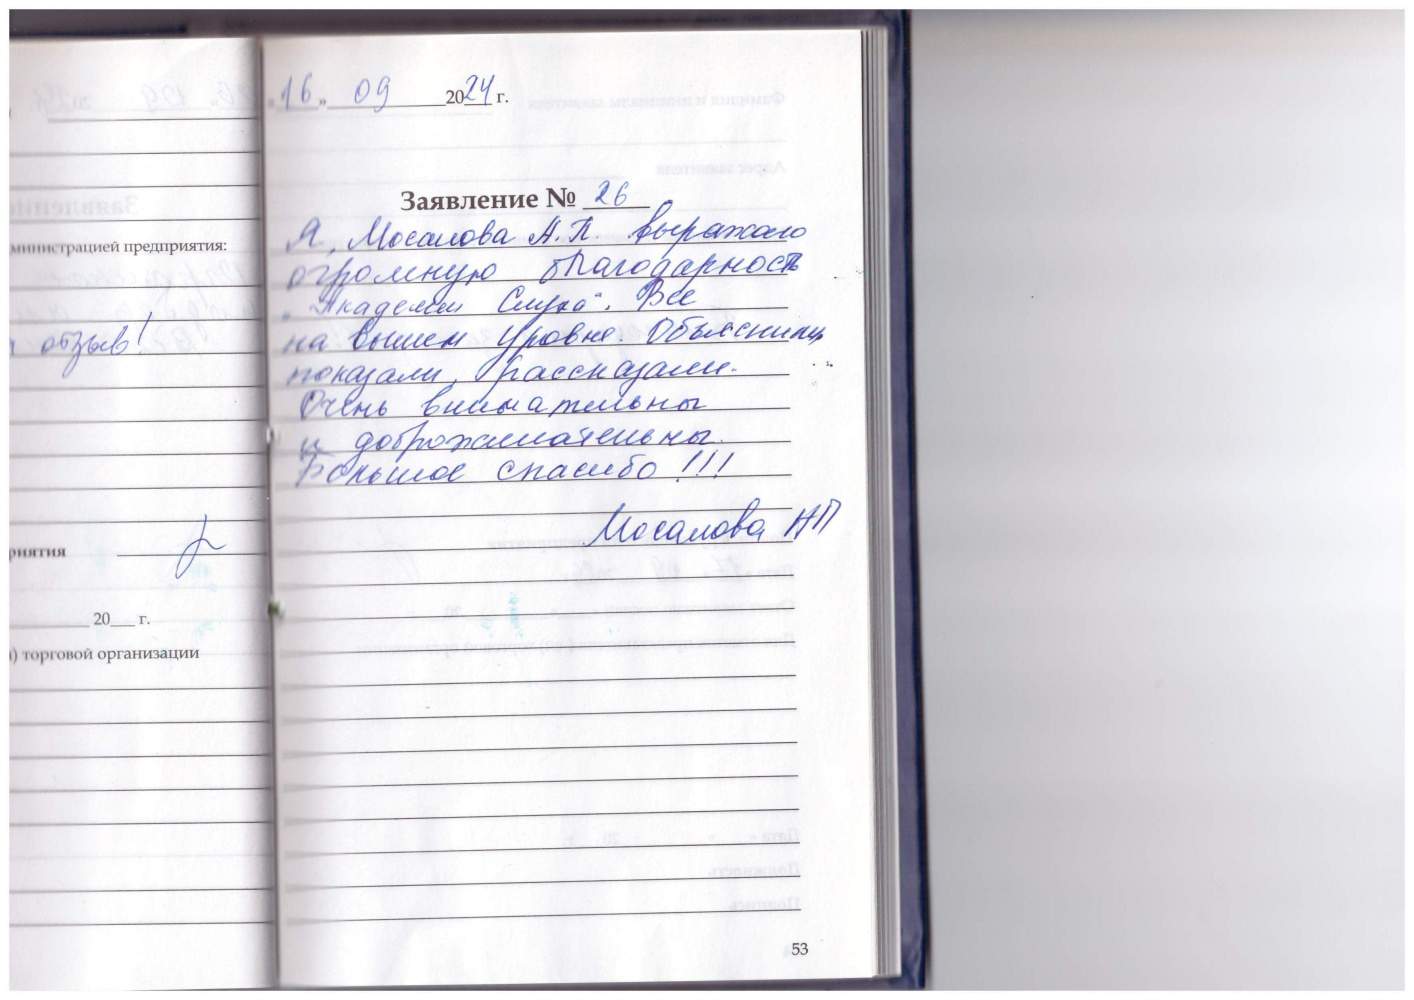 министрацией предприятия:
отзыв!
риятия
20___ г.
) торговой организации
«16» 09 2024 г.
Заявление № 26
Я, Мосалова А.П. выражаю
огромную благодарность
"Академии Слуха". Все
на вышем уровне. Объяснили,
показали, рассказали.
Очень внимательны
и доброжелательны.
Большое спасибо!!!
Мосалова НП
53